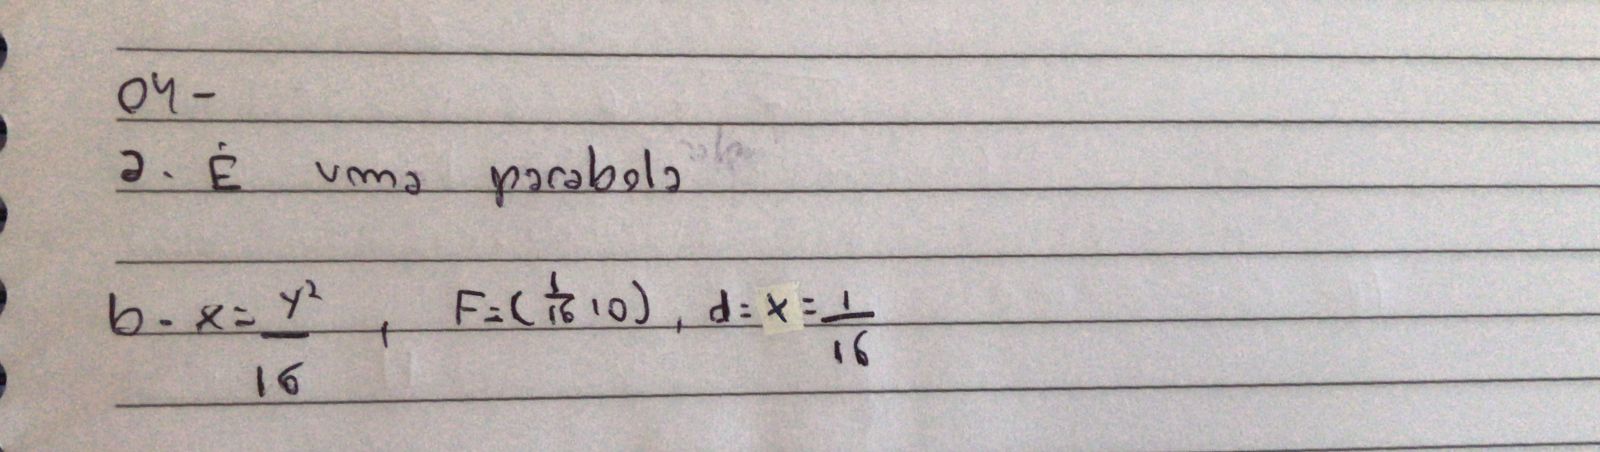 04-
a. É uma parabola
b. x = y²/16 , F = (1/16 , 0) , d = x = 1/16